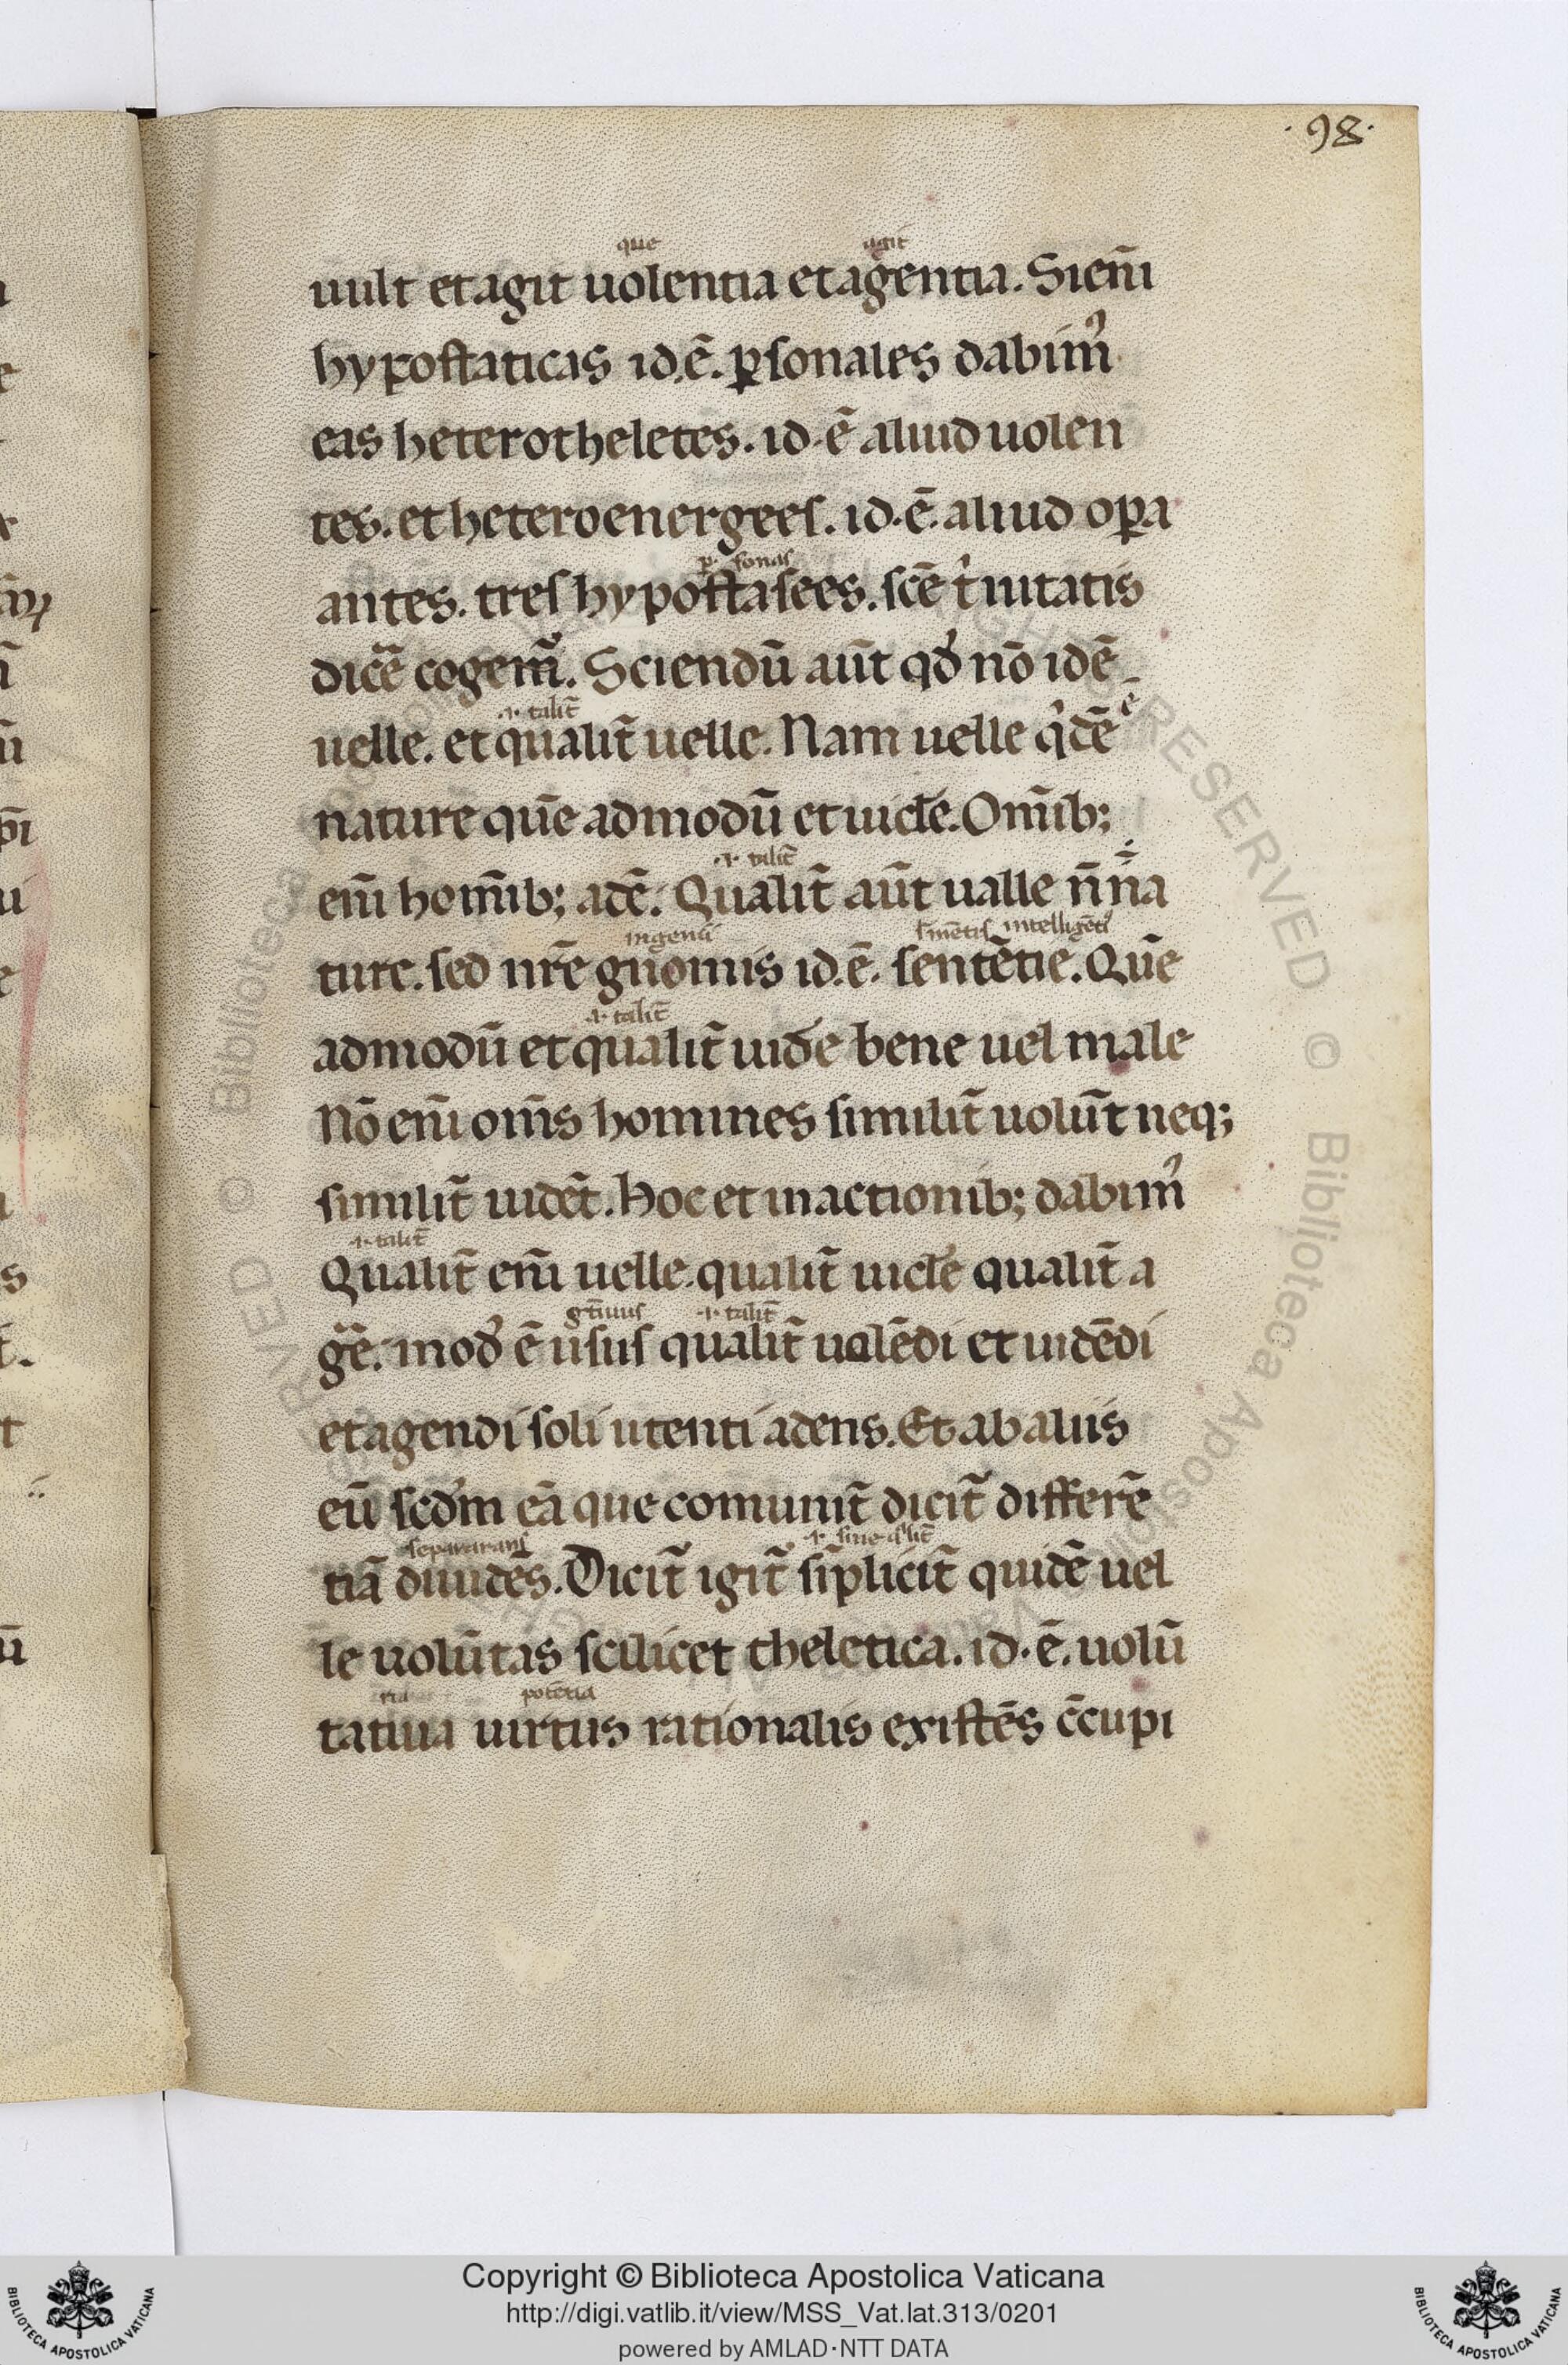 ·98·
que agit
uult et agit uolentia et agentia. Si eni̅
hypostaticas id.e̅. ꝑsonales dabim᾿
eas heterotheletes. id·e̅ aliud uolen
tes. et heteroenergees. id·e̅. aliud oꝑa
ꝑsonas
antes. tres hypostasees. sce̅ t'initatis
dice̅ cogem̃. Sciendu̅ au̅t qd' no̅ ide̅
.i. talit̃
uelle. et qualit̃ uelle. Nam uelle q'de̅ e̅
nature̅ que̅ admodu̅ et uide'e. Om̅ib;
.i. talit̃
eni̅ homi̅b; ade̅. Qualit̃ au̅t ualle n̅ na
ingenii mentis intelligenti
ture. sed nr̅e gnomis id.e̅. sente̅tie. Que̅
.i. talit̃
admodu̅ et qualit̃ uide'e bene uel male
No̅ eni̅ om̅s homines similit̃ uolu̅t neq;
similit̃ uide̅t. Hoc et in actionib; dabim᾿
.i. talit̃
Qualit̃ eni̅ uelle. qualit̃ uide'e qualit̃ a
.i. talit̃
ge̅. mod' e̅ usus qualit̃ uole̅di et uide̅di
et agendi soli utenti adens. Et ab aliis
eu̅ scd'm ea̅ que comunit̃ dicit̃ differe̅
separarans .i. siue q'lit̃
tia̅ diuide̅s. Dicit̃ igit̃ si̅plicit̃ quide̅ uel
le uolu̅tas scilicet theletica. id·e̅. uolu̅
ria pote̅tia
tatiua uirtus rationalis existe̅s c̅cupi
Copyright © Biblioteca Apostolica Vaticana
http://digi.vatlib.it/view/MSS_Vat.lat.313/0201
powered by AMLAD·NTT DATA
BIBLIOTECA APOSTOLICA VATICANA
BIBLIOTECA APOSTOLICA VATICANA